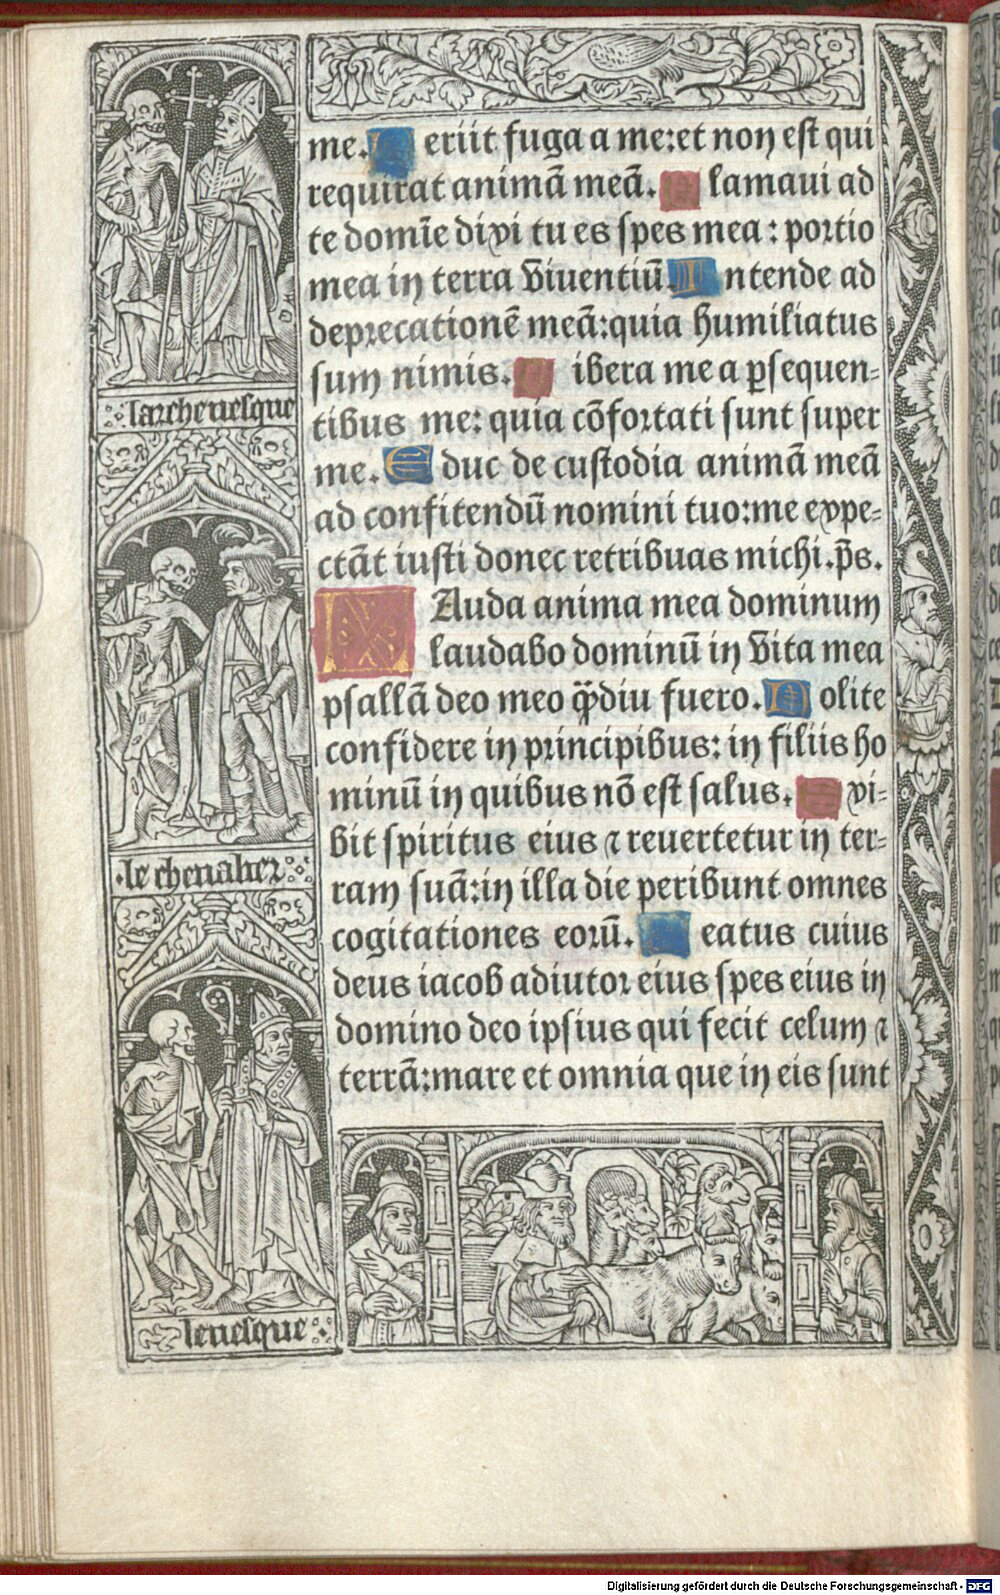 me. P eriit fuga a me:et non est qui
requirat animā meā. C lamaui ad
te domīe dixi tu es spes mea : portio
mea in terra viuentiū. I ntende ad
deprecationē meā:quia humiliatus
sum nimis. L ibera me a ꝑsequen-
tibus me: quia cōfortati sunt super
me. E duc de custodia animā meā
ad confitendū nomini tuo:me expe-
ctāt iusti donec retribuas michi.p̄s.
L Auda anima mea dominum
laudabo dominū in vita mea
psallā deo meo q̄̄diu fuero. N olite
confidere in principibus: in filiis ho
minū in quibus nō est salus. E xi-
bit spiritus eius ⁊ reuertetur in ter-
ram suā:in illa die peribunt omnes
cogitationes eorū. B eatus cuius
deus iacob adiutor eius spes eius in
domino deo ipsius qui fecit celum ⁊
terrā:mare et omnia que in eis sunt
larcheuesque
le cheualier
leuesque
Digitalisierung gefördert durch die Deutsche Forschungsgemeinschaft - DFG